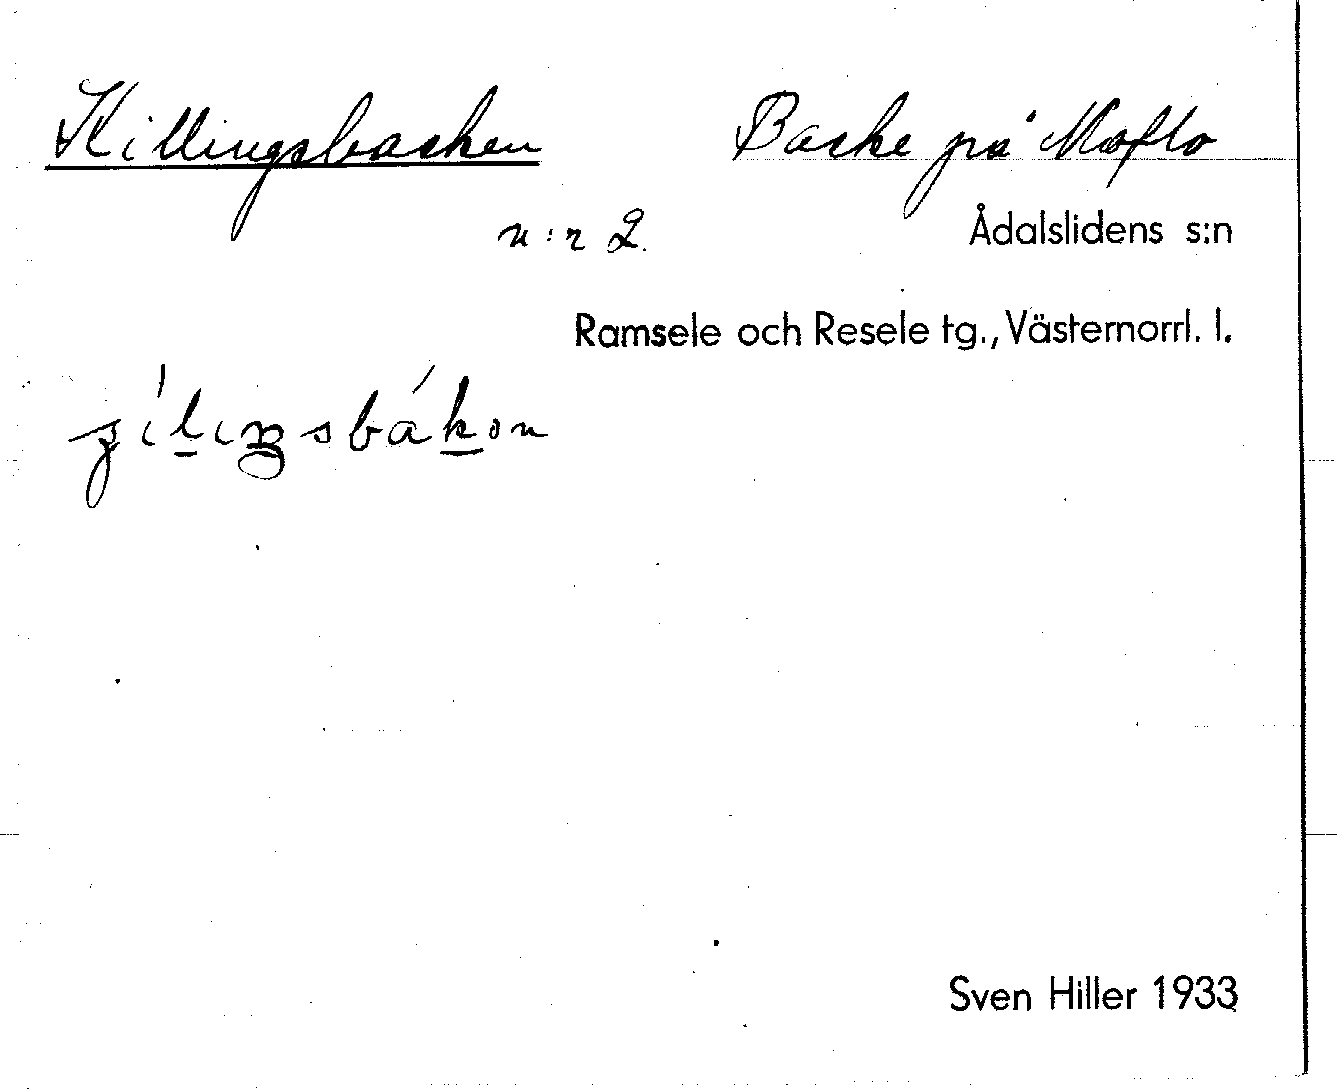 Killingsbacken Backe på Moflo
n:r 2. Ådalslidens s:n
Ramsele och Resele tg., Västernorrl. l.
Sven Hiller 1933